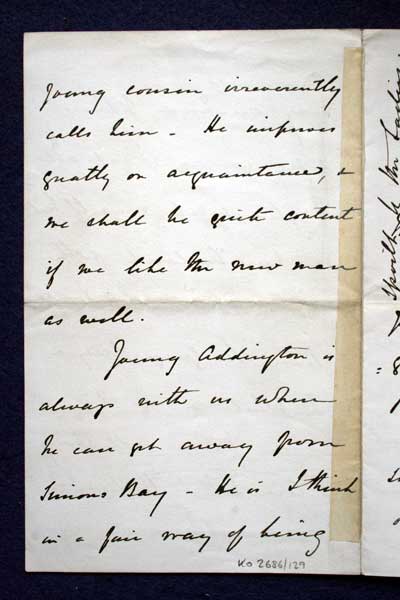 young cousin irreverently
calls him – He improves
greatly on acquaintance, &
we shall be quite content
if we like the new man
as well.
Young Addington is
always with us when
he can get away from
Simons Bay – He is I think
in a fair way of being
KO 2686/129